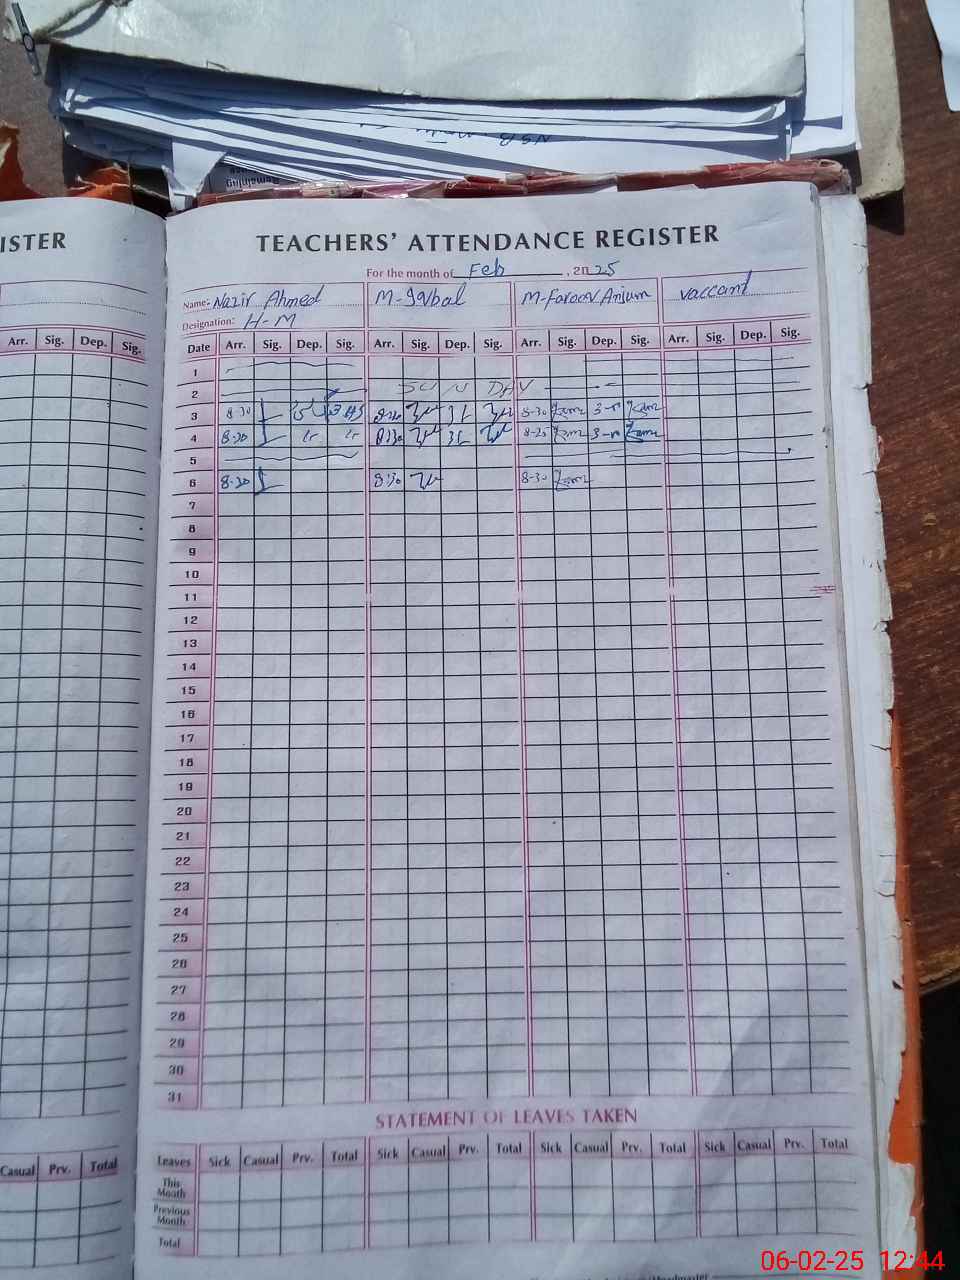 NSB
Remaining
ISTER
TEACHERS' ATTENDANCE REGISTER
For the month of Feb, 2025
Name: Nazir Ahmed M-Iqbal M-Farooq Anjum vaccant
Designation: H-M
Arr. Sig. Dep. Sig. Date Arr. Sig. Dep. Sig. Arr. Sig. Dep. Sig. Arr. Sig. Dep. Sig. Arr. Sig. Dep. Sig.
1
2 SUN DAY
3 8-30 8:30 8-30
4 8-30 8:30 8-30
5
6 8-30 8:30 8-30
7
8
9
10
11
12
13
14
15
16
17
18
19
20
21
22
23
24
25
26
27
28
29
30
31
STATEMENT OF LEAVES TAKEN
Casual Prv. Total Leaves Sick Casual Prv. Total Sick Casual Prv. Total Sick Casual Prv. Total Sick Casual Prv. Total
This Month
Previous Month
Total
06-02-25 12:44